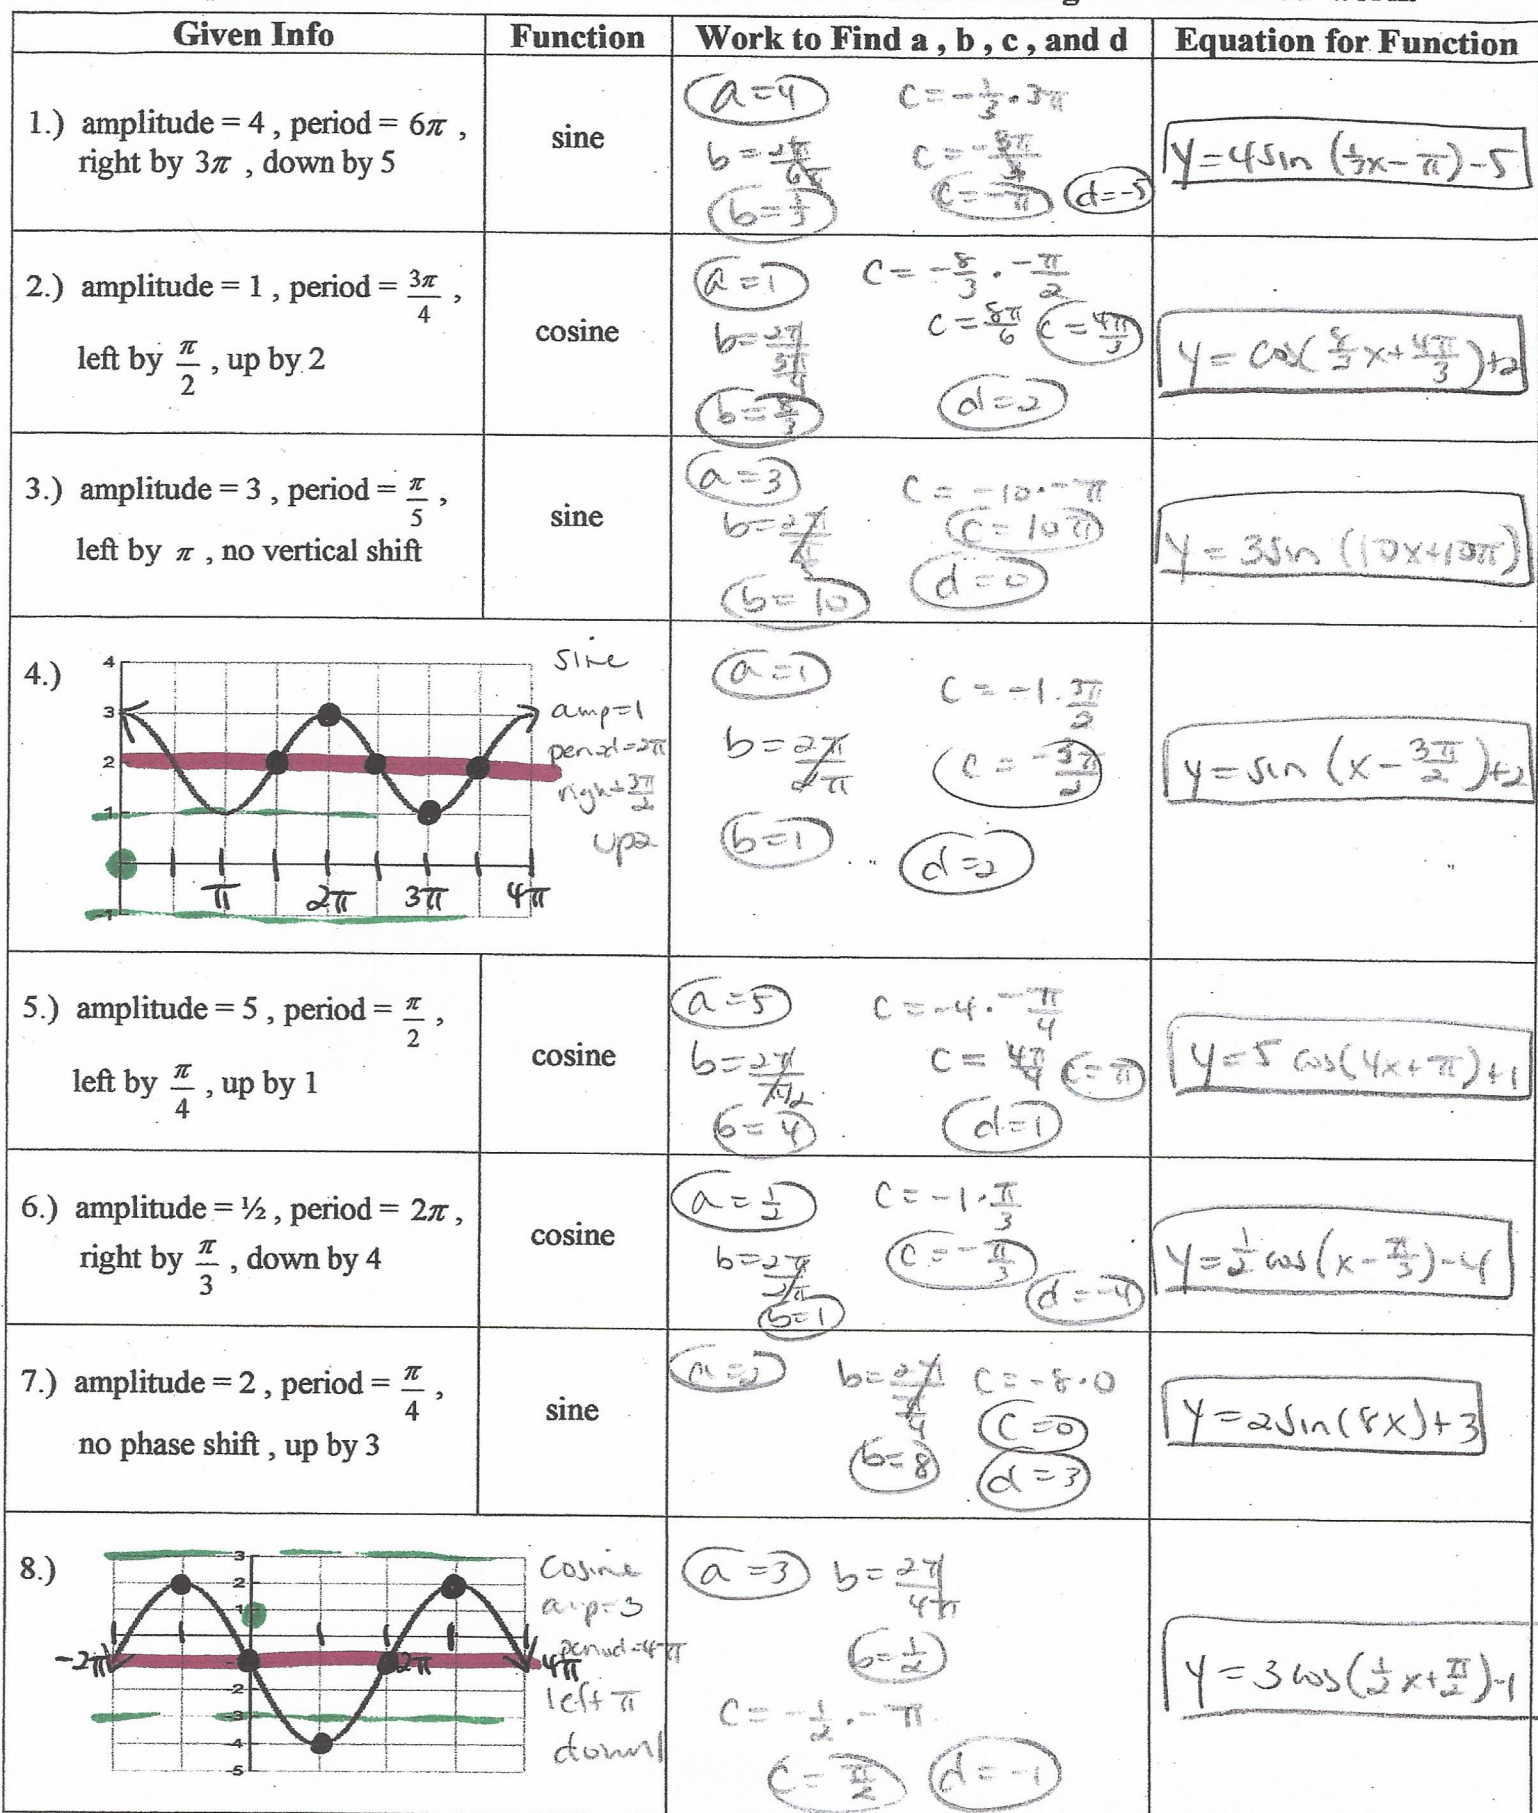 Given Info
Function
Work to Find a , b , c , and d
Equation for Function
1.) amplitude = 4 , period = 6π ,
right by 3π , down by 5
sine
a=4
b=2π/6π
b=1/3
c=-1/3·3π
c=-3π/3
c=-π
d=-5
y=4sin(1/3x-π)-5
2.) amplitude = 1 , period = 3π/4 ,
left by π/2 , up by 2
cosine
a=1
b=2π/(3π/4)
b=8/3
c=-8/3·-π/2
c=8π/6
c=4π/3
d=2
y=cos(8/3x+4π/3)+2
3.) amplitude = 3 , period = π/5 ,
left by π , no vertical shift
sine
a=3
b=2π/
b=10
c=-10·-π
c=10π
d=0
y=3sin(10x+10π)
4.)
4
3
2
1
-1
π
2π
3π
4π
sine
amp=1
period=2π
right 3π/2
up2
a=1
b=2π/2π
b=1
c=-1·3π/2
c=-3π/2
d=2
y=sin(x-3π/2)+2
5.) amplitude = 5 , period = π/2 ,
left by π/4 , up by 1
cosine
a=5
b=2π/π/2
b=4
c=-4·-π/4
c=4π/4
c=π
d=1
y=5cos(4x+π)+1
6.) amplitude = ½ , period = 2π ,
right by π/3 , down by 4
cosine
a=1/2
b=2π/2π
b=1
c=-1·π/3
c=-π/3
d=-4
y=1/2cos(x-π/3)-4
7.) amplitude = 2 , period = π/4 ,
no phase shift , up by 3
sine
a=2
b=2π/(π/4)
b=8
c=-8·0
c=0
d=3
y=2sin(8x)+3
8.)
3
2
1
-2
-3
-4
-5
-2π
2π
4π
cosine
amp=3
period=4π
left π
down1
a=3
b=2π/4π
b=1/2
c=-1/2·-π
c=π/2
d=-1
y=3cos(1/2x+π/2)-1